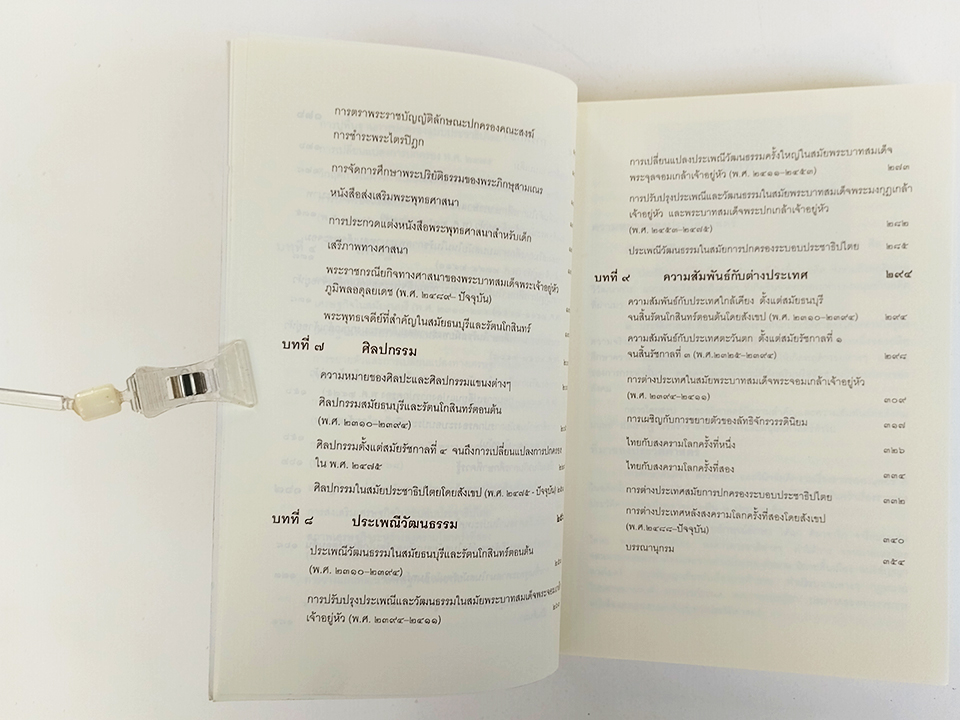 การตราพระราชบัญญัติลักษณะปกครองคณะสงฆ์
การชำระพระไตรปิฎก
การจัดการศึกษาพระปริยัติธรรมของพระภิกษุสามเณร
หนังสือส่งเสริมพระพุทธศาสนา
การประกวดแต่งหนังสือพระพุทธศาสนาสำหรับเด็ก
เสรีภาพทางศาสนา
พระราชกรณียกิจทางศาสนาของพระบาทสมเด็จพระเจ้าอยู่หัว
ภูมิพลอดุลยเดช (พ.ศ. ๒๔๘๙- ปัจจุบัน)
พระพุทธเจดีย์ที่สำคัญในสมัยธนบุรีและรัตนโกสินทร์
บทที่ ๗ ศิลปกรรม
ความหมายของศิลปะและศิลปกรรมแขนงต่างๆ
ศิลปกรรมสมัยธนบุรีและรัตนโกสินทร์ตอนต้น
(พ.ศ. ๒๓๑๐-๒๓๙๔)
ศิลปกรรมตั้งแต่สมัยรัชกาลที่ ๔ จนถึงการเปลี่ยนแปลงการปกครอง
ใน พ.ศ. ๒๔๗๕
ศิลปกรรมในสมัยประชาธิปไตยโดยสังเขป (พ.ศ. ๒๔๗๕ - ปัจจุบัน)
บทที่ ๘ ประเพณีวัฒนธรรม
ประเพณีวัฒนธรรมในสมัยธนบุรีและรัตนโกสินทร์ตอนต้น
(พ.ศ. ๒๓๑๐-๒๓๙๔)
การปรับปรุงประเพณีและวัฒนธรรมในสมัยพระบาทสมเด็จพระจอมเกล้า
เจ้าอยู่หัว (พ.ศ. ๒๓๙๔-๒๔๑๑)
การเปลี่ยนแปลงประเพณีวัฒนธรรมครั้งใหญ่ในสมัยพระบาทสมเด็จ
พระจุลจอมเกล้าเจ้าอยู่หัว (พ.ศ. ๒๔๑๑-๒๔๕๓) ๒๗๓
การปรับปรุงประเพณีและวัฒนธรรมในสมัยพระบาทสมเด็จพระมงกุฎเกล้า
เจ้าอยู่หัว และพระบาทสมเด็จพระปกเกล้าเจ้าอยู่หัว
(พ.ศ. ๒๔๕๓-๒๔๗๕) ๒๘๒
ประเพณีวัฒนธรรมในสมัยการปกครองระบอบประชาธิปไตย ๒๘๕
บทที่ ๙ ความสัมพันธ์กับต่างประเทศ ๒๙๔
ความสัมพันธ์กับประเทศใกล้เคียง ตั้งแต่สมัยธนบุรี
จนสิ้นรัตนโกสินทร์ตอนต้นโดยสังเขป (พ.ศ. ๒๓๑๐-๒๓๙๔) ๒๙๔
ความสัมพันธ์กับประเทศตะวันตก ตั้งแต่สมัยรัชกาลที่ ๑
จนสิ้นรัชกาลที่ ๓ (พ.ศ.๒๓๒๕-๒๓๙๔) ๒๙๘
การต่างประเทศในสมัยพระบาทสมเด็จพระจอมเกล้าเจ้าอยู่หัว
(พ.ศ. ๒๓๙๔-๒๔๑๑) ๓๐๙
การเผชิญกับการขยายตัวของลัทธิจักรวรรดินิยม ๓๑๗
ไทยกับสงครามโลกครั้งที่หนึ่ง ๓๒๖
ไทยกับสงครามโลกครั้งที่สอง ๓๓๔
การต่างประเทศสมัยการปกครองระบอบประชาธิปไตย ๓๓๒
การต่างประเทศหลังสงครามโลกครั้งที่สองโดยสังเขป
(พ.ศ.๒๔๘๘-ปัจจุบัน) ๓๔๐
บรรณานุกรม ๓๕๔